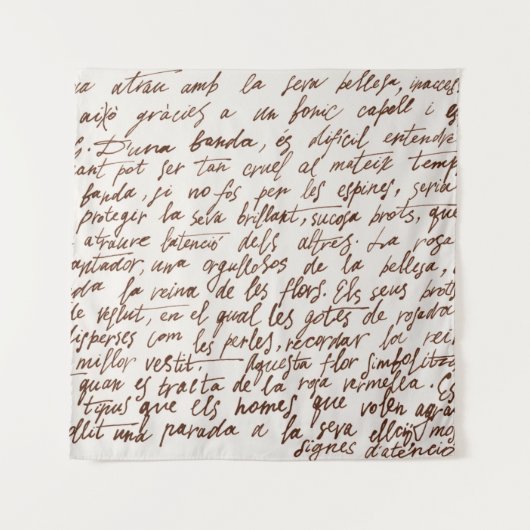 na atrau amb la seva bellesa, inacces
això gràcies a un fonic capell i e
s. D'una banda, és difícil entendre
ant pot ser tan cruel al mateix temp
banda, si no fos per les espines, seria
protegir la seva brillant, sucosa brots, que
atraure l'atenció dels altres. La rosa
antador, una orgullosos de la bellesa,
da la reina de les flors. Els seus brots
de vellut, en el qual les gotes de rosada
disperses com les perles, recordar la rei
millor vestit. Aquesta flor simbolitza
quan es tracta de la rosa vermella. Es
tipus que els homes que volen agra
ollit una parada a la seva mo
signes d'atenció